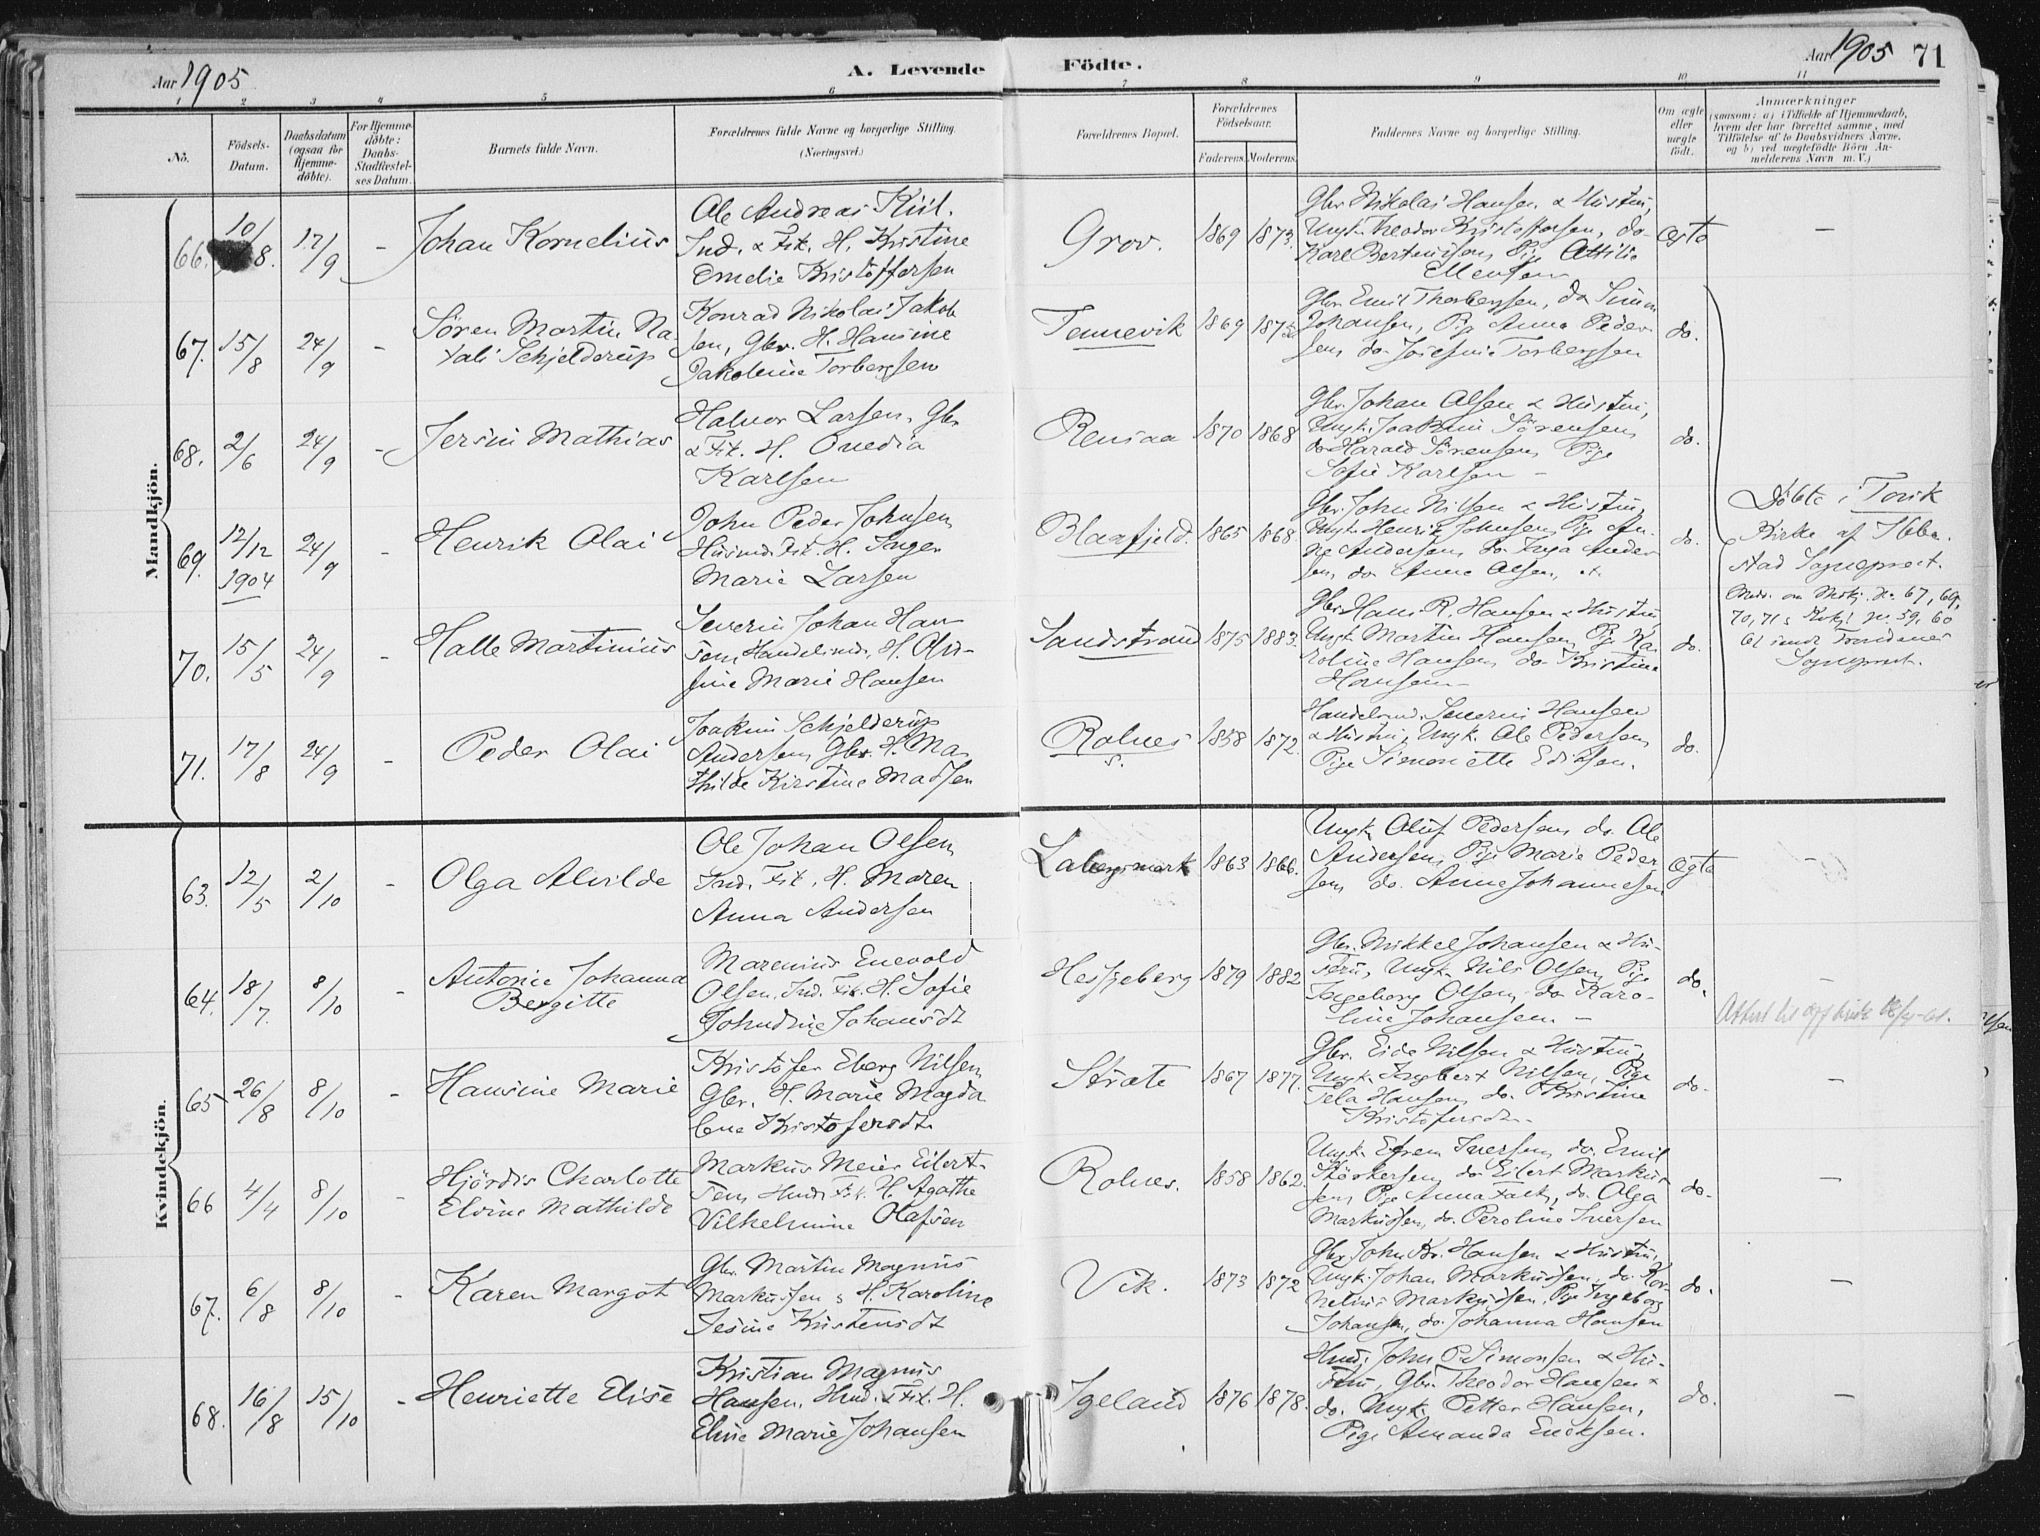 Aar 1905
A. Levende
Födte.
Aar 1905 71
1 2 3 4 5 6 7 8 9 10 11
No.
Födsels-
Datum.
Daabsdatum
(ogsaa for
Hjemme-
døbte).
For Hjemme-
döbte:
Daabs-
Stadfæstel-
ses Datum.
Barnets fulde Navn.
Forældrenes fulde Navne og borgerlige Stilling.
(Næringsvei.)
Forældrenes Bopæl.
Forældrenes
Födselsaar.
Faderens. Moderens.
Faddernes Navne og borgerlige Stilling.
Om ægte
eller
uægte
født.
Anmærkninger
(saasom: a) i Tilfælde af Hjemmedaab,
hvem der har forrettet samme, med
Tilföielse af to Daabsvidners Navne,
og b) ved uægtefödte Börn An-
melderens Navn m. V.)
Mandkjön.
66. 10/8. 17/9 - Johan Kornelius
Ole Andreas Kiil.
Ind. & Fik. H. Kristine
Emelie Kristoffersen
Grov. 1869 1873.
Gbr Nikolai Hansen & Hustru,
Ungk. Theodor Kristoffersen, do.
Karl Bertensen, Pige Attilie
Ellensen
ægte -
67. 15/8 24/9 - Søren Martin Na-
tali Schjelderup
Konrad Nikolai Jakob
sen, Gbr. H. Hansine
Jakobine Torbergsen
Tennevik 1869
Gbr. Emil Thorbergsen, do Simon
Johansen, Pige Anna Peder-
sen, do. Josefine Torbergsen
do.
68. 2/6 24/9 - Jersin Mathias
Halvor Larsen, Gbr
& Fik. H. Ovedia
Karlsen
Rensaa 1870 1868
Gbr. Johan Olsen & Hustru,
Ungk. Joakim Sørensen,
do Harald Sørensen, Pige
Sofie Karlsen -
do.
69. 12/12 1904 24/9 - Henrik Olai
John Peder Johnsen,
Husmd. Fik. H. Inger
Marie Larsen
Blaafjeld. 1865 1868.
Gbr. John Nilsen & Hustru,
Ungk. Henrik Johnsen, Pige An-
ne Andersen, do Inga Ander
sen, do Anna Olsen,
do.
70. 15/5 24/9 - Halle Martinius
Severin Johan Han
sen, Handelsmd., H. Olu-
fine Marie Hansen
Sandstrand 1875 1883.
Gbr. Hans R. Hansen & Hustru
Ungk. Martin Hansen, Pige Ka
roline Hansen, do. Kristine
Hansen -
do.
71. 17/8 24/9 - Peder Olai
Joakim Schjelderup
Andersen, Gbr. H. Ma
thilde Kirstine Madsen
Rolnes
s. 1858 1872.
Handelsmd. Severin Hansen
& Hustru, Ungk. Ole Pedersen,
Pige Simonette Ediasen.
do.
Døbte i Torsk
Kirke af Ibbe-
stad Sogneprest.
Mandkj. No. 67, 69,
70, 71 & Kvkj. No. 59, 60
61 Trondenes
Sogneprest.
Kvindekjön.
63. 12/5 2/10 - Olga Alvilde
Ole Johan Olsen,
Ind. Fik. H. Maren
Anna Andersen
Labergsmark 1863 1866.
Ungk. Oluf Pedersen, do. Ole
Andersen, Pige Marie Peder
sen, do. Anna Johannesen
ægte -
64. 18/7. 8/10 - Antonie Johanna
Bergitte
Marenius Enevold
Olsen, Ind. Fik. H. Sofie
Johndine Johansdt
Hesjeberg 1879 1882
Gbr. Mikkel Johansen & Hu-
stru, Ungk. Nils Olsen, Pige
Ingeborg Olsen, do Karo-
line Johansen -
do. -
Attest
65 26/8 8/10 - Hansine Marie
Kristofer Eberg Nilsen,
Gbr. H. Marie Magda
lene Kristofersdt.
Stræte 1867 1877.
Gbr. Eide Nilsen & Hustru,
Ungk. Ingbert Nilsen, Pige
Tela Hansen, do. Kristine
Kristofersdt.
do. -
66 4/4 8/10 - Hjørdis Charlotte
Elvine Mathilde
Markus Meier Eilert-
sen, Hmd. Fik. H. Agathe
Vilhelmine Olafsen
Rolnes. 1858 1862.
Ungk. Efrem Iversen, do. Emil
Størkersen, do Eilert Markus-
sen, Pige Anna Falk, do. Olga
Markussen, do. Peroline Iversen
do. -
67. 6/8 8/10 - Karen Margot
Gbr. Martin Magnus
Markussen & H. Karoline
Jesine Kristensdt
Vik. 1873 1872
Gbr John Kr. Hansen & Hustru,
Ungk. Johan Markussen, do. Kor-
nelius Markussen, Pige Ingeborg
Johansen, do. Johanna Hansen
do. -
68. 16/8 15/10 - Henriette Elise
Kristian Magnus
Hansen, Hmd. & Fik. H.
Eline Marie Johansen
Igeland 1876 1878.
Hmd. John P. Simonsen & Hu-
stru, Gbr. Theodor Hansen &
do. Ungk. Petter Hansen,
Pige Amanda Ericksen.
do. -